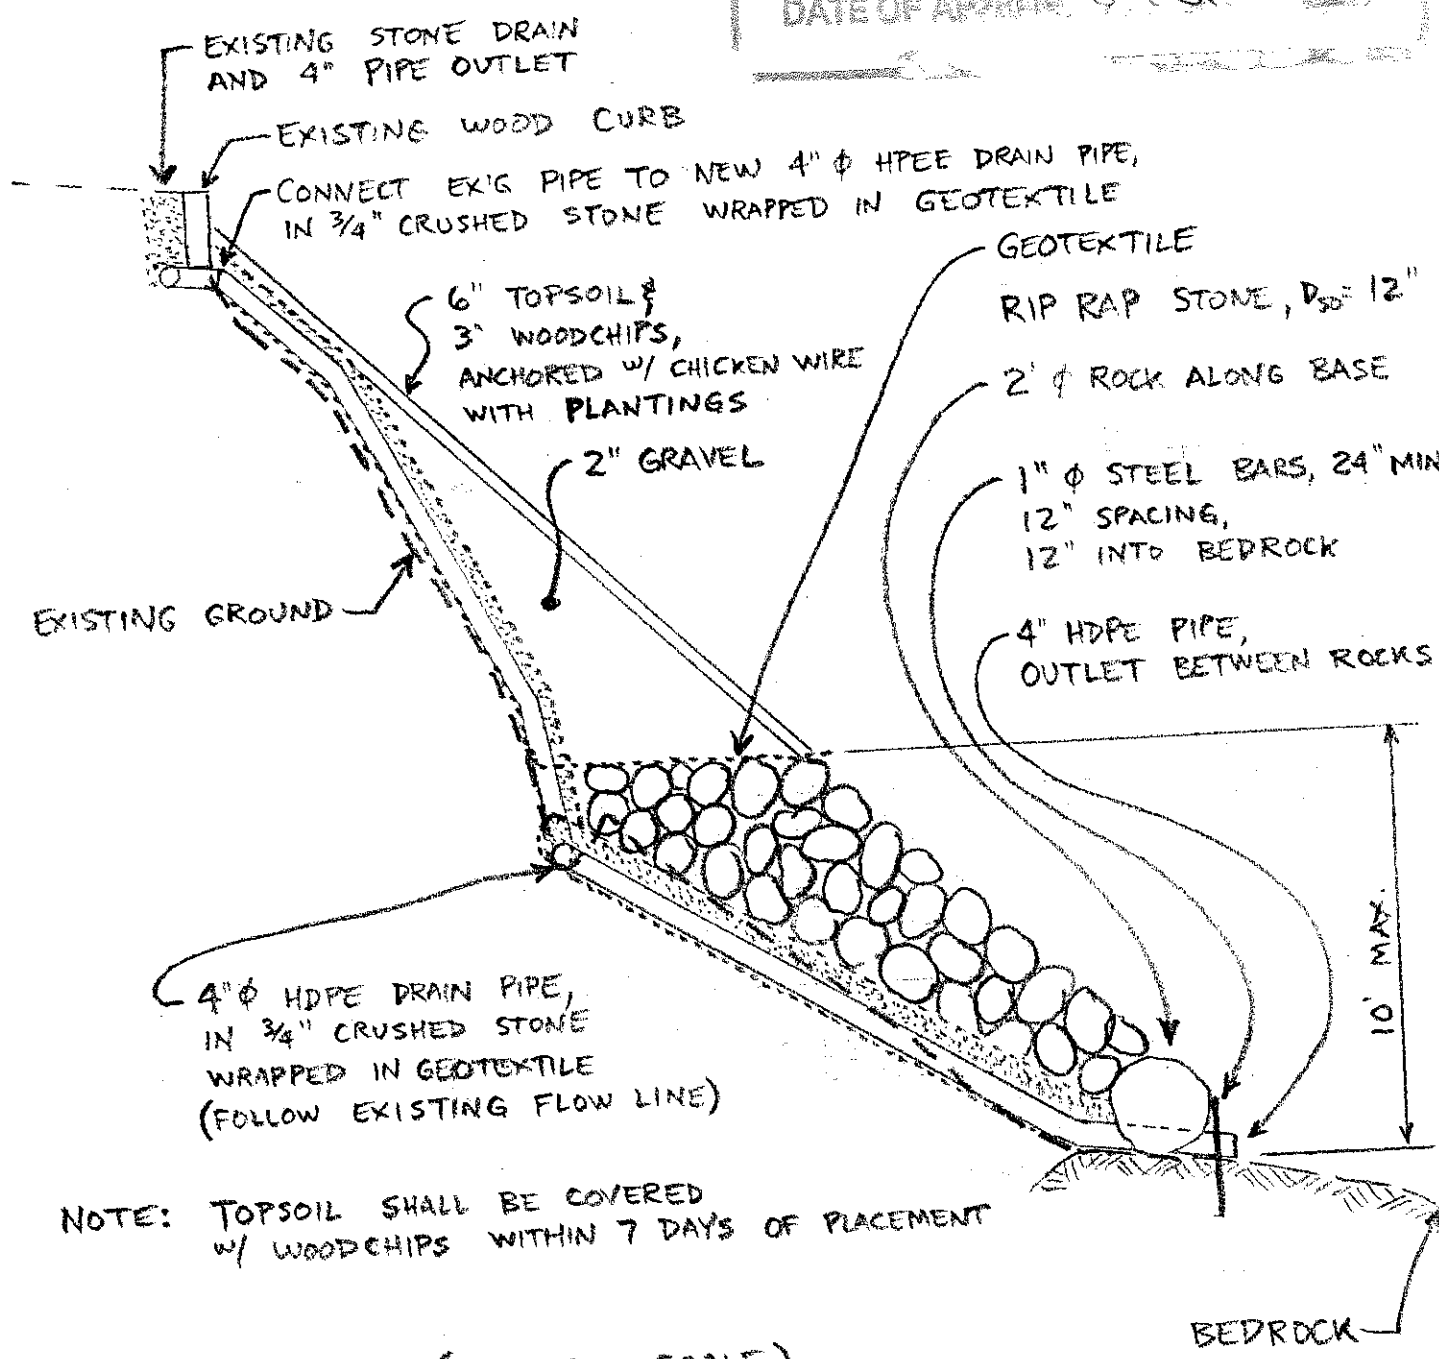 DATE OF
EXISTING STONE DRAIN
AND 4" PIPE OUTLET
EXISTING WOOD CURB
CONNECT EX'G PIPE TO NEW 4" φ HPEE DRAIN PIPE,
IN 3/4" CRUSHED STONE WRAPPED IN GEOTEXTILE
GEOTEXTILE
RIP RAP STONE, D50= 12"
6" TOPSOIL &
3" WOODCHIPS,
ANCHORED W/ CHICKEN WIRE
WITH PLANTINGS
2' φ ROCK ALONG BASE
2" GRAVEL
1" φ STEEL BARS, 24" MIN
12" SPACING,
12" INTO BEDROCK
EXISTING GROUND
4" HDPE PIPE,
OUTLET BETWEEN ROCKS
10' MAX.
4" φ HDPE DRAIN PIPE,
IN 3/4" CRUSHED STONE
WRAPPED IN GEOTEXTILE
(FOLLOW EXISTING FLOW LINE)
NOTE: TOPSOIL SHALL BE COVERED
W/ WOODCHIPS WITHIN 7 DAYS OF PLACEMENT
BEDROCK